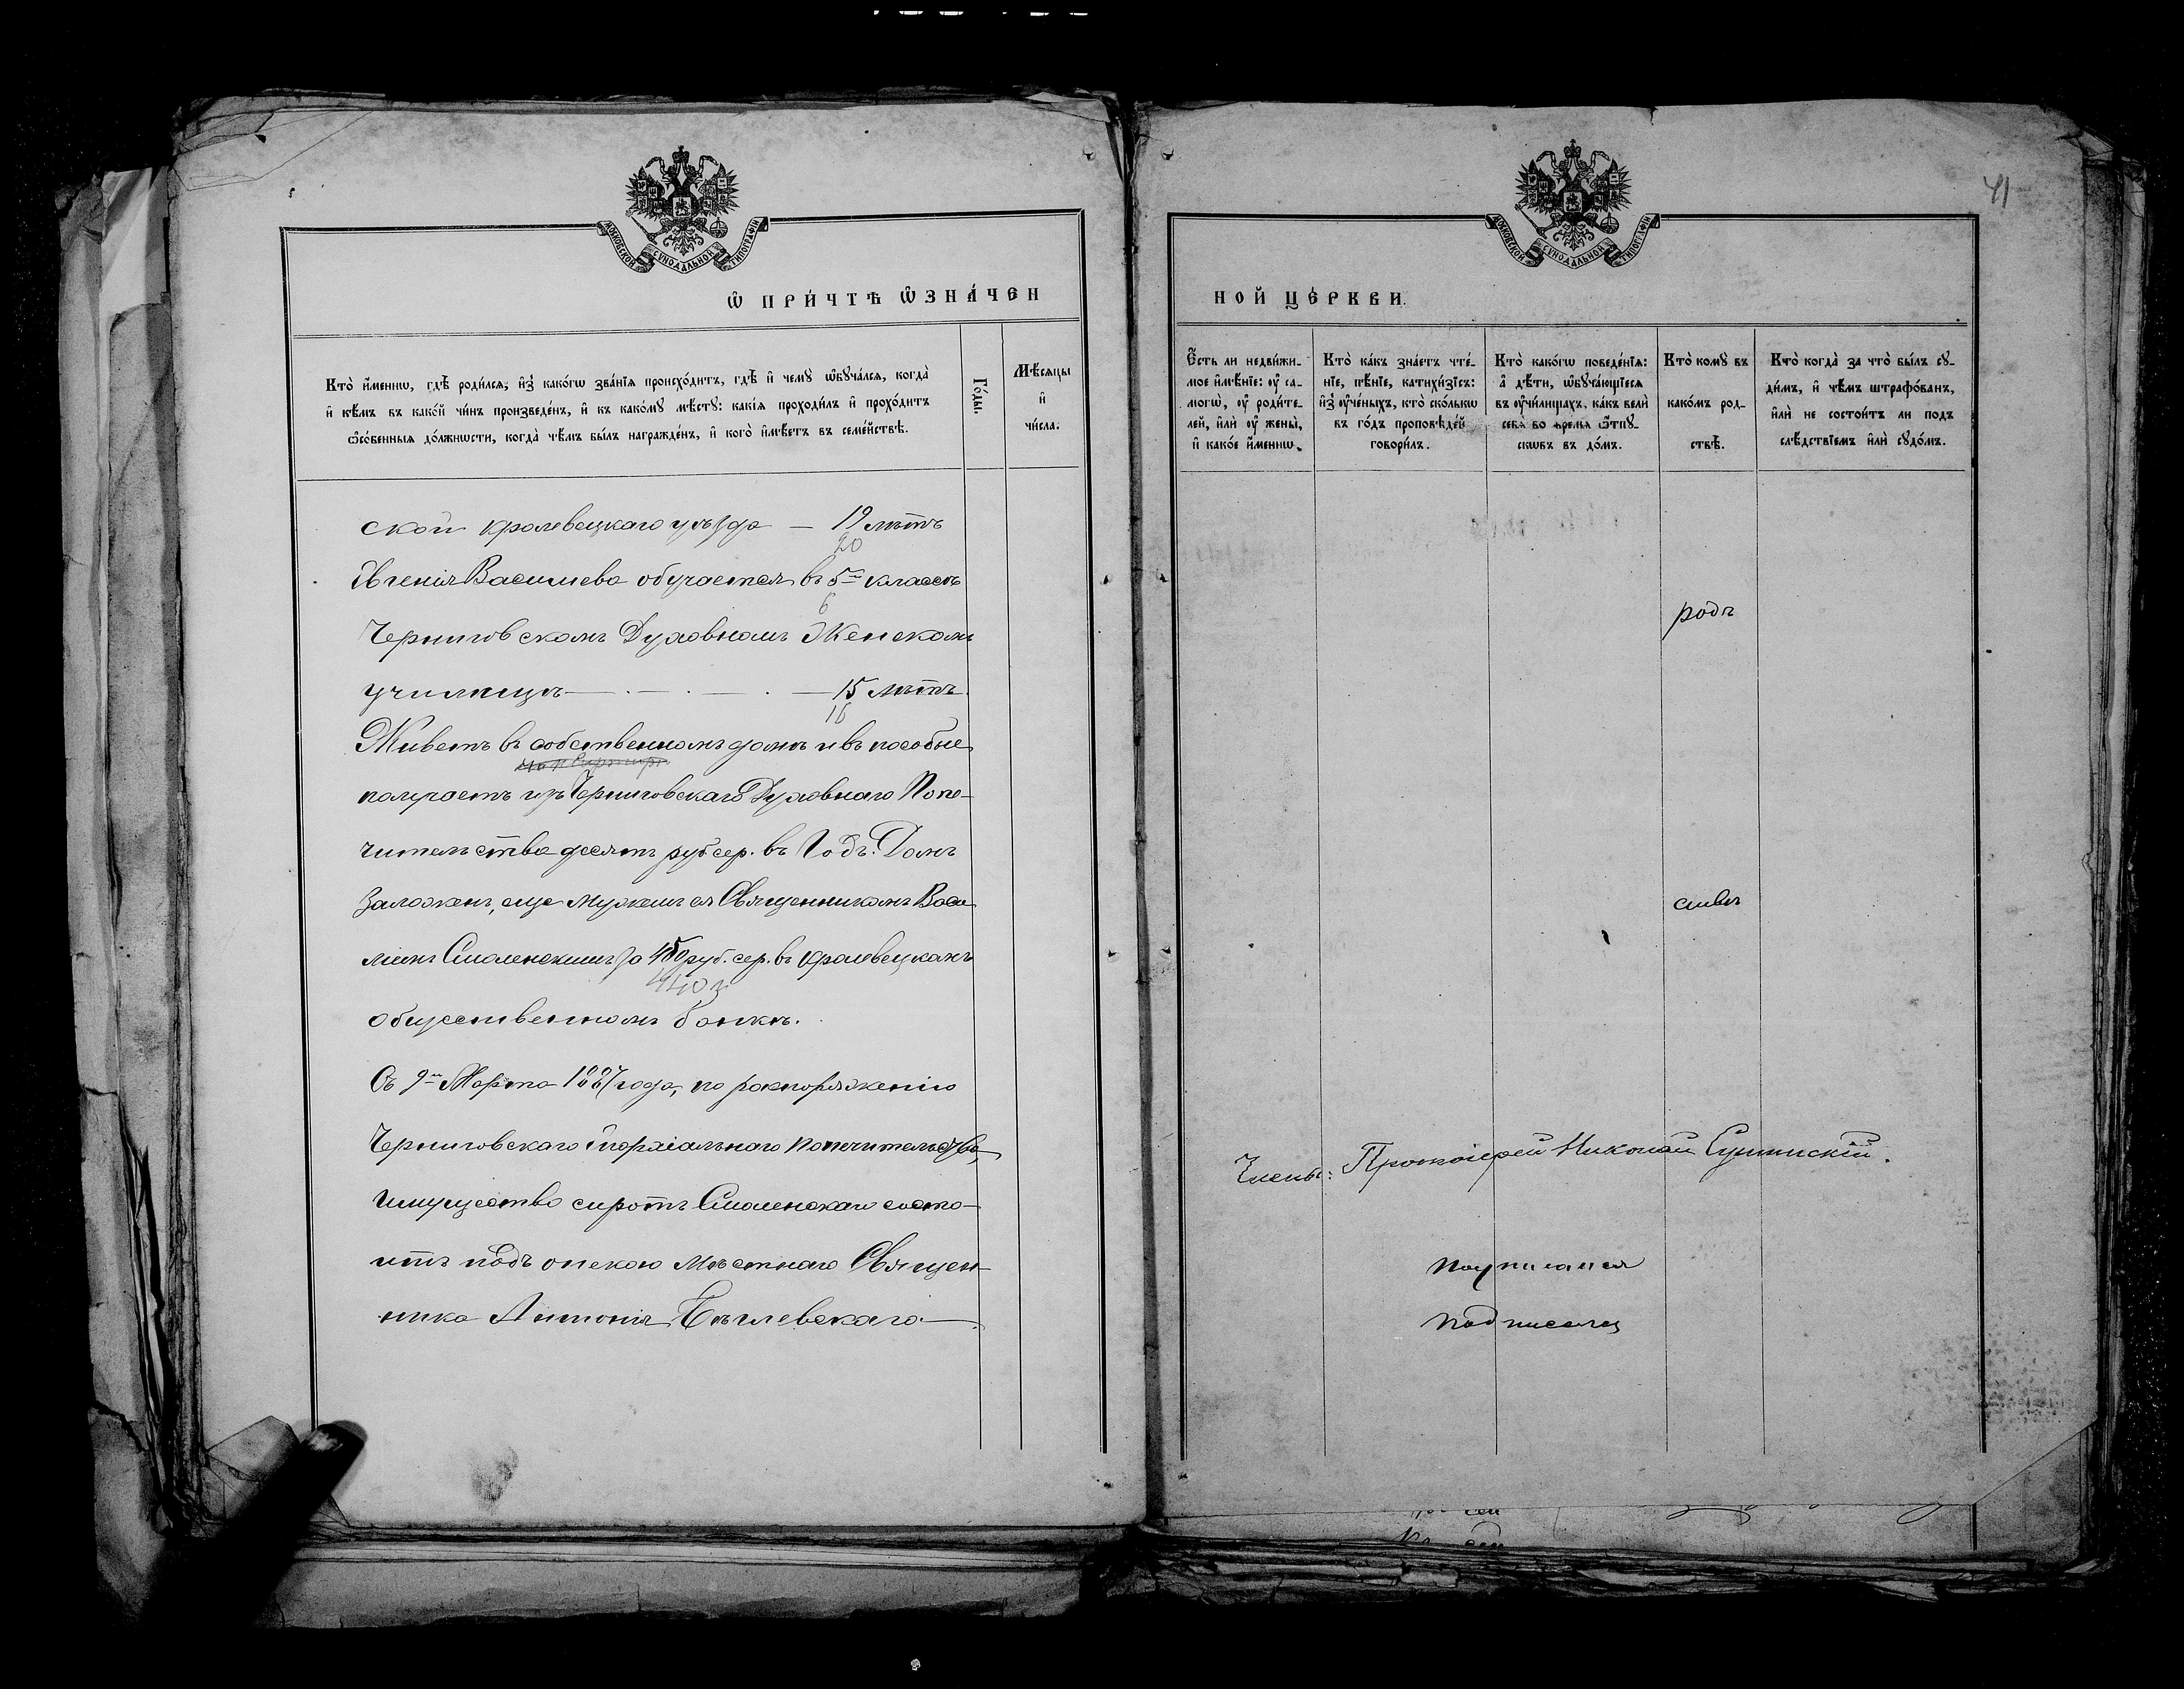 МОСКОВСКОЙ СѴНОДАЛЬНОЙ ТИПОГРАФІИ
Ѡ ПРИ́ЧТѢ ѠЗНА́ЧЕН
Кто̀ и҆́менно, гдѣ̀ роди́лся, и҆з̾ како́гѡ зва́нїя происхо́дитъ, гдѣ̀ и҆ чемꙋ̀ ѡ҆бꙋча́лся, когда̀
и҆ кѣ́мъ въ како́й чи́нъ произведе́нъ, и҆ къ како́мꙋ мѣ́стꙋ: какі́я проходи́лъ и҆ прохо́дитъ
ѻ҆со́бенныя до́лжнѡсти, когда̀ чѣ́мъ бы́лъ награжде́нъ, и҆ кого̀ и҆мѣ́етъ въ семе́йствѣ.
Го́ды.
Мѣ́сяцы
и҆
чи́сла.
ской Кролевецкаго уѣзда — 19 лѣтъ
20
Евгенія Васильева обучается въ 5м классѣ
6
Черниговскомъ Духовномъ Женскомъ
училищѣ — . — . — . — 15 лѣтъ.
16
Живетъ въ собственномъ домѣ и въ пособіе
получаетъ изъ Черниговскаго Духовнаго Попе-
чительства десять руб сер. въ Годъ. Домъ
Заложенъ, еще мужемъ ея Священникомъ Васи
ліемъ Смоленскимъ за 450 руб. сер. въ Кролевецкомъ
440
общественномъ банкѣ.
Съ 9го Марта 1887 года, по распоряженію
Черниговскаго Епархіальнаго Попечительства,
имущество сиротъ Смоленскаго состо-
итъ подъ опекою мѣстнаго Священ-
ника Антонія Бѣлевскаго —
41
МОСКОВСКОЙ СѴНОДАЛЬНОЙ ТИПОГРАФІИ
НОЙ ЦЕ́РКВИ.
Є҆́сть ли недви́жи-
мое и҆мѣ́нїе: ᲂу҆ са-
могѡ̀, ᲂу҆ роди́те-
лей, и҆лѝ ᲂу҆ жены̀,
и҆ како́е и҆́менно.
Кто̀ ка́къ зна́етъ чте́-
нїе, пѣ́нїе, катихи́зїсъ:
и҆з̾ ᲂу҆че́ныхъ, кто̀ ско́лькѡ
въ го́дъ проповѣ́дей
говори́лъ.
Кто̀ како́гѡ поведе́нїя:
а҆ дѣ́ти, ѡ҆бꙋча́ющїеся
въ ᲂу҆чи́лищахъ, ка́къ велѝ
себя̀ во вре́мя ѿпꙋ-
сковъ въ до́мъ.
Кто̀ комꙋ̀ въ
како́мъ род-
ствѣ̀.
Кто̀ когда̀ за что̀ бы́лъ сꙋ-
ди́мъ, и҆ чѣ́мъ штрафо́ванъ,
и҆лѝ не состои́тъ ли подъ
слѣ́дствїемъ и҆лѝ сꙋдо́мъ.
родъ
Члены: Протоіерей Николай
подписался